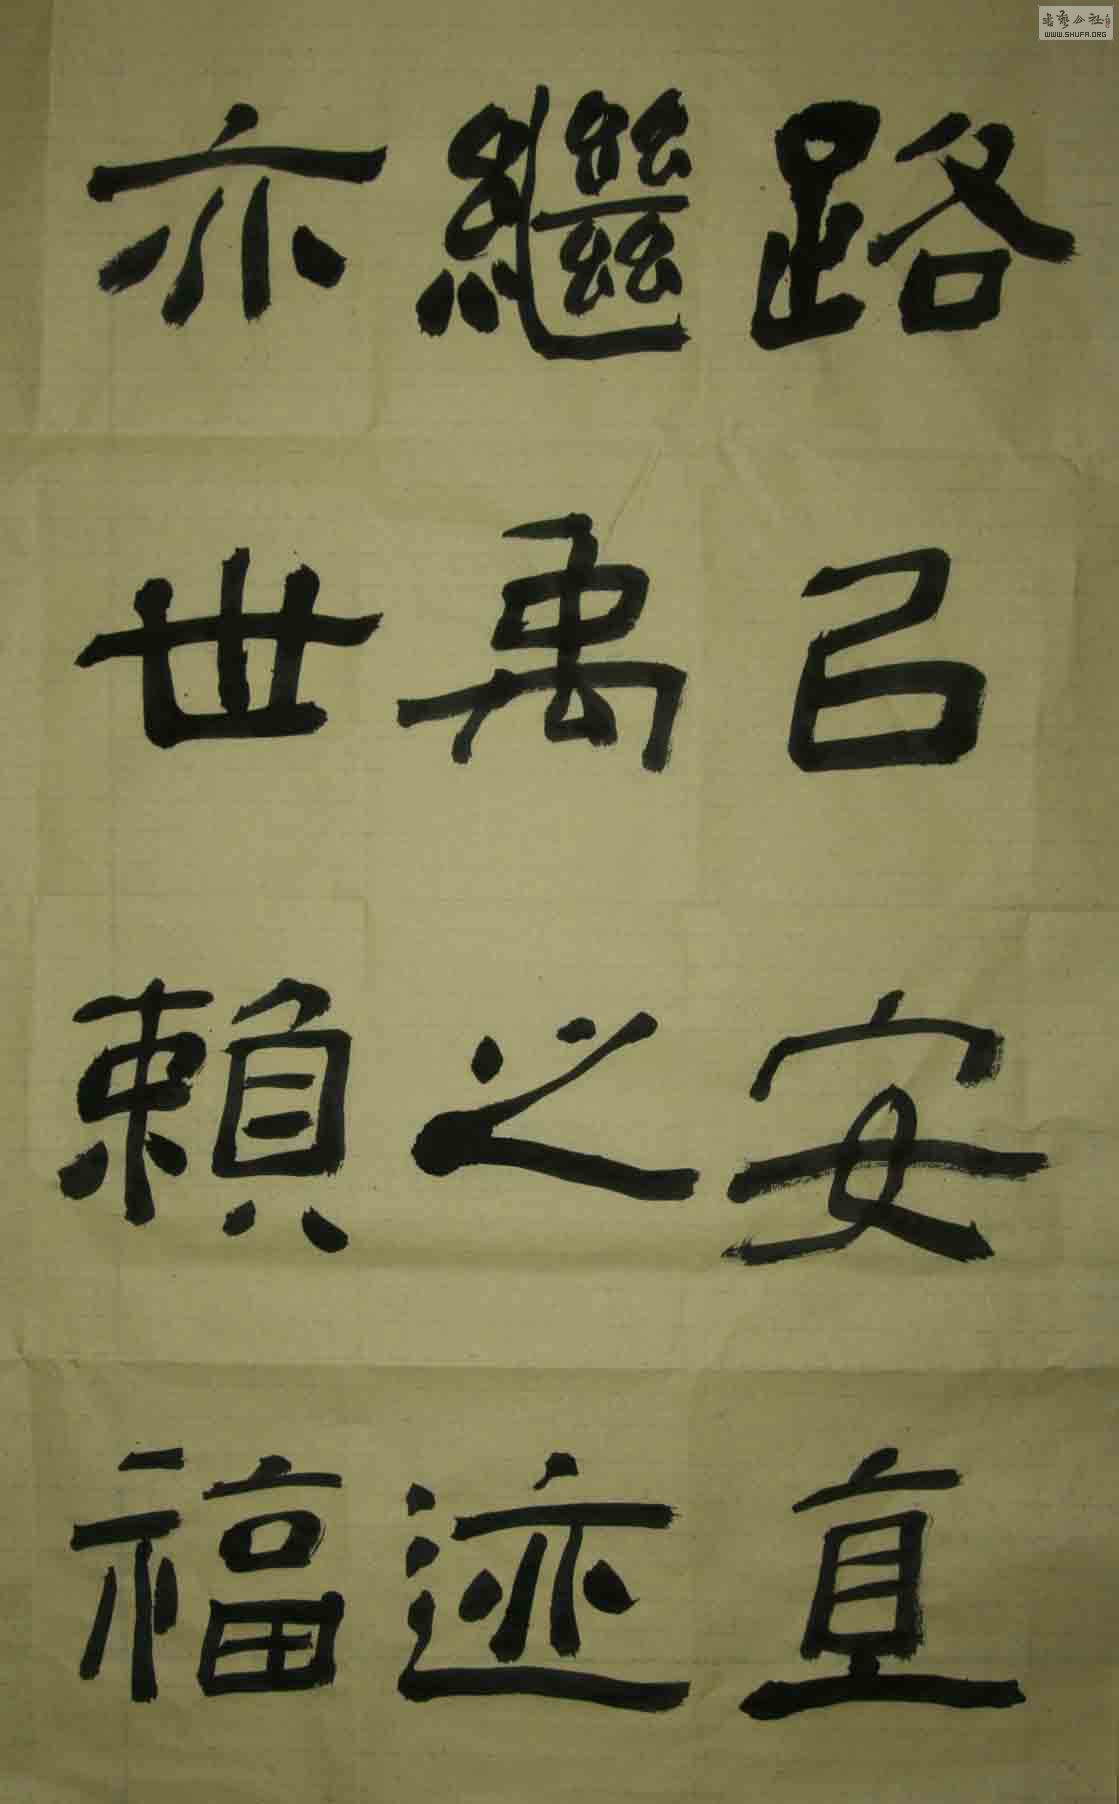 路㠯安直
繼禹之迹
亦世賴福
書藝公社
WWW.SHUFA.ORG